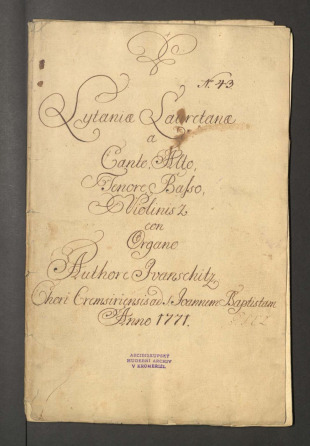 N. 43
Lytaniæ Lauretanæ
a
Canto, Alto,
Tenore, Basso,
Violinis 2
con
Organo
Authore Ivanschitz
Chori Cremsiriensis ad S. Joannem Baptistam
Anno 1771.
ARCIBISKUPSKÝ
HUDEBNÍ ARCHIV
V KROMĚŘÍŽI.